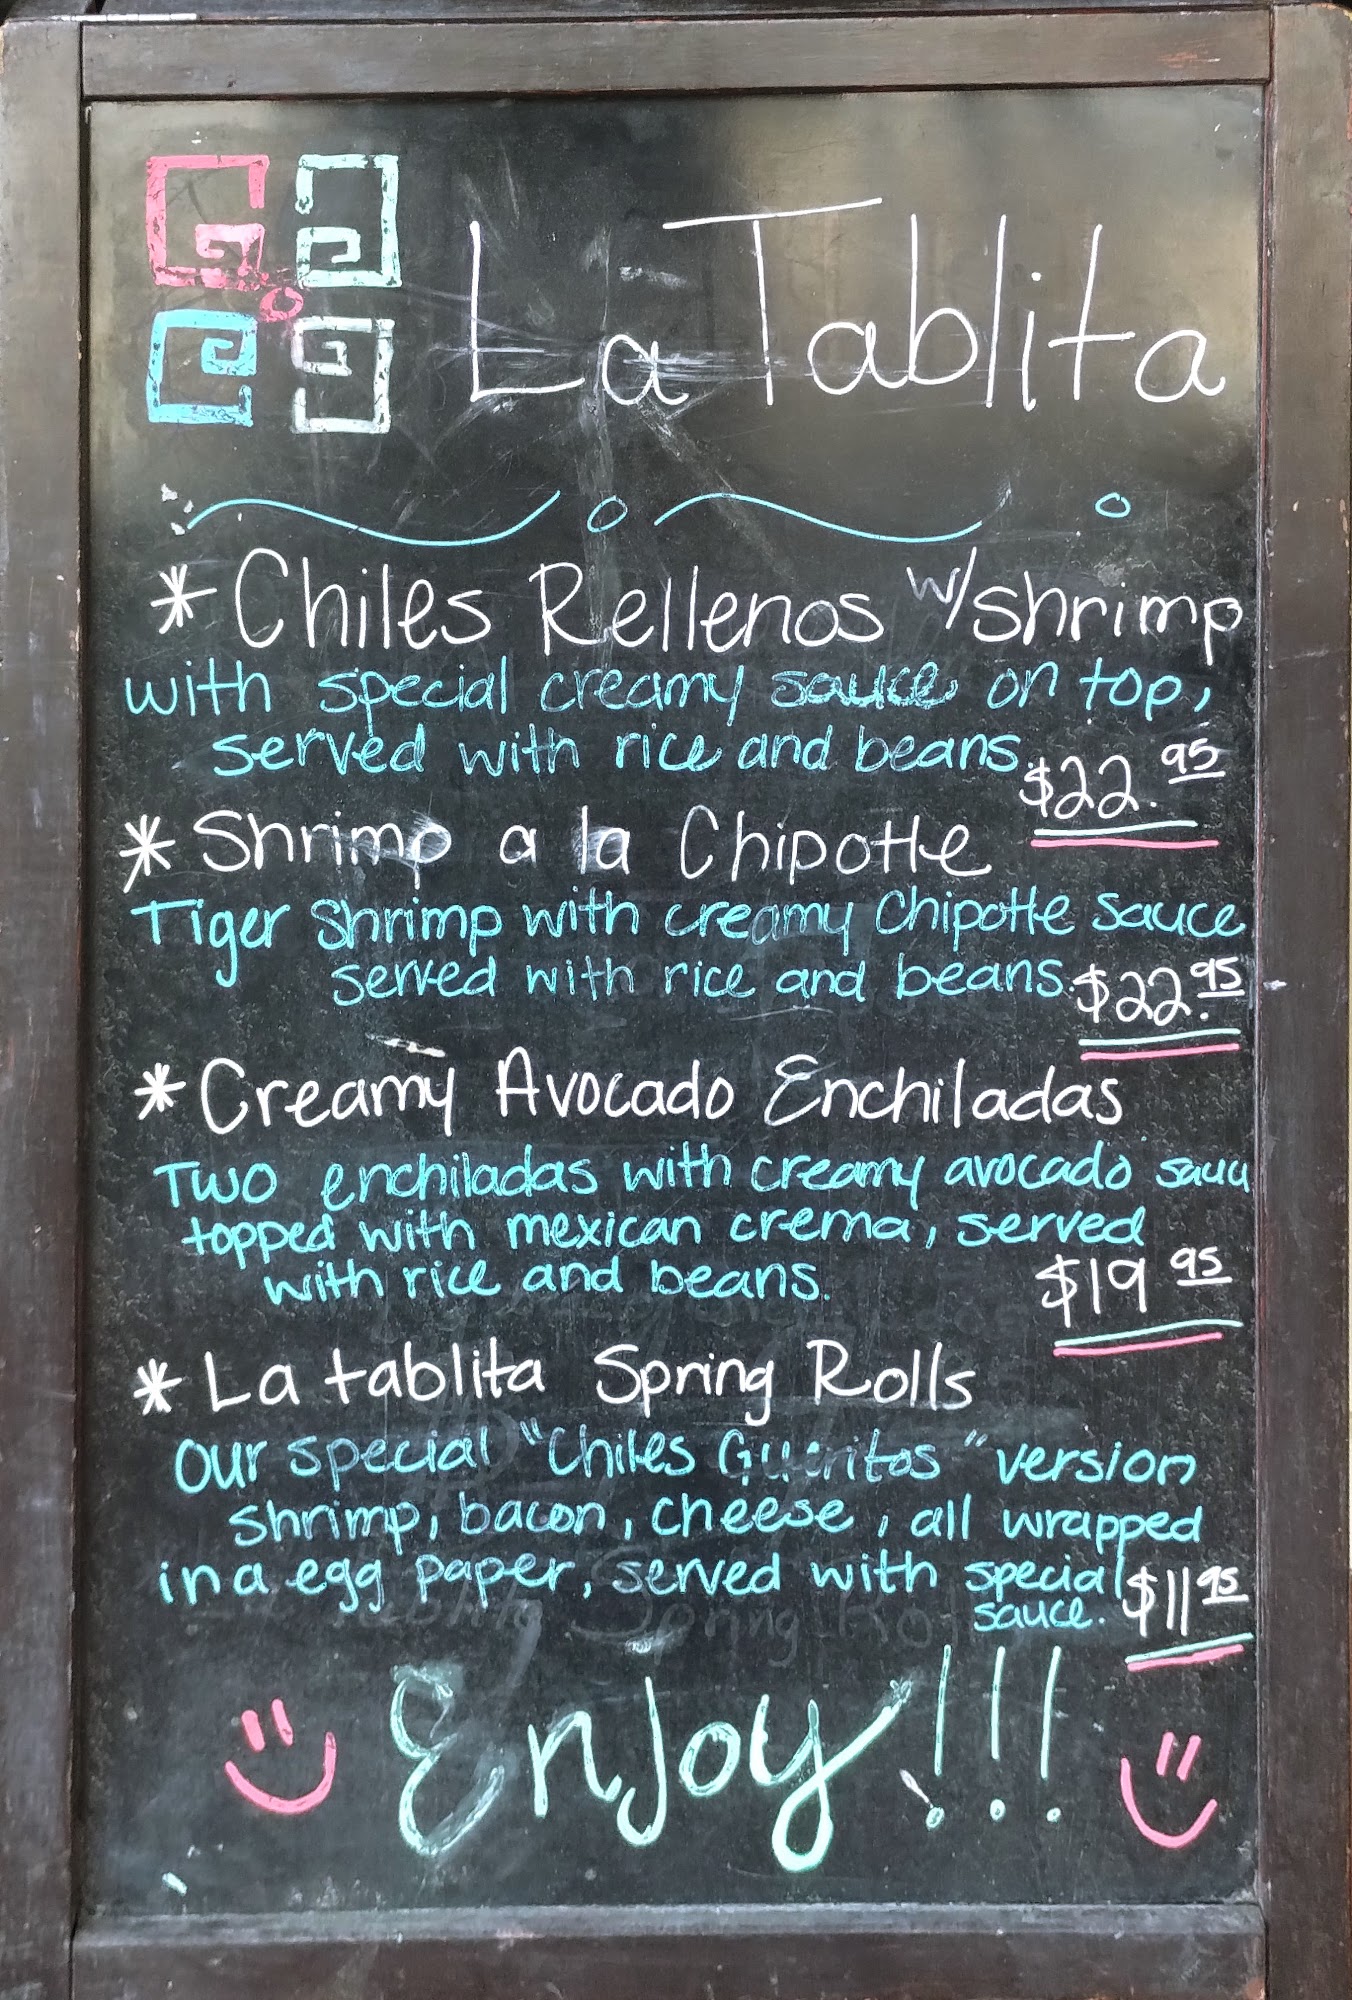 La Tablita
* Chiles Rellenos w/shrimp
with special creamy sauce on top,
served with rice and beans. $22.95
* Shrimp a la Chipotle
Tiger Shrimp with creamy Chipotle sauce
served with rice and beans. $22.95
* Creamy Avocado Enchiladas
Two enchiladas with creamy avocado
topped with mexican crema, served
with rice and beans. $19 95
* La tablita Spring Rolls
our special "Chiles Gueritos" version
shrimp, bacon, cheese, all wrapped
in a egg paper, served with special
sauce. $11 95
Enjoy!!!